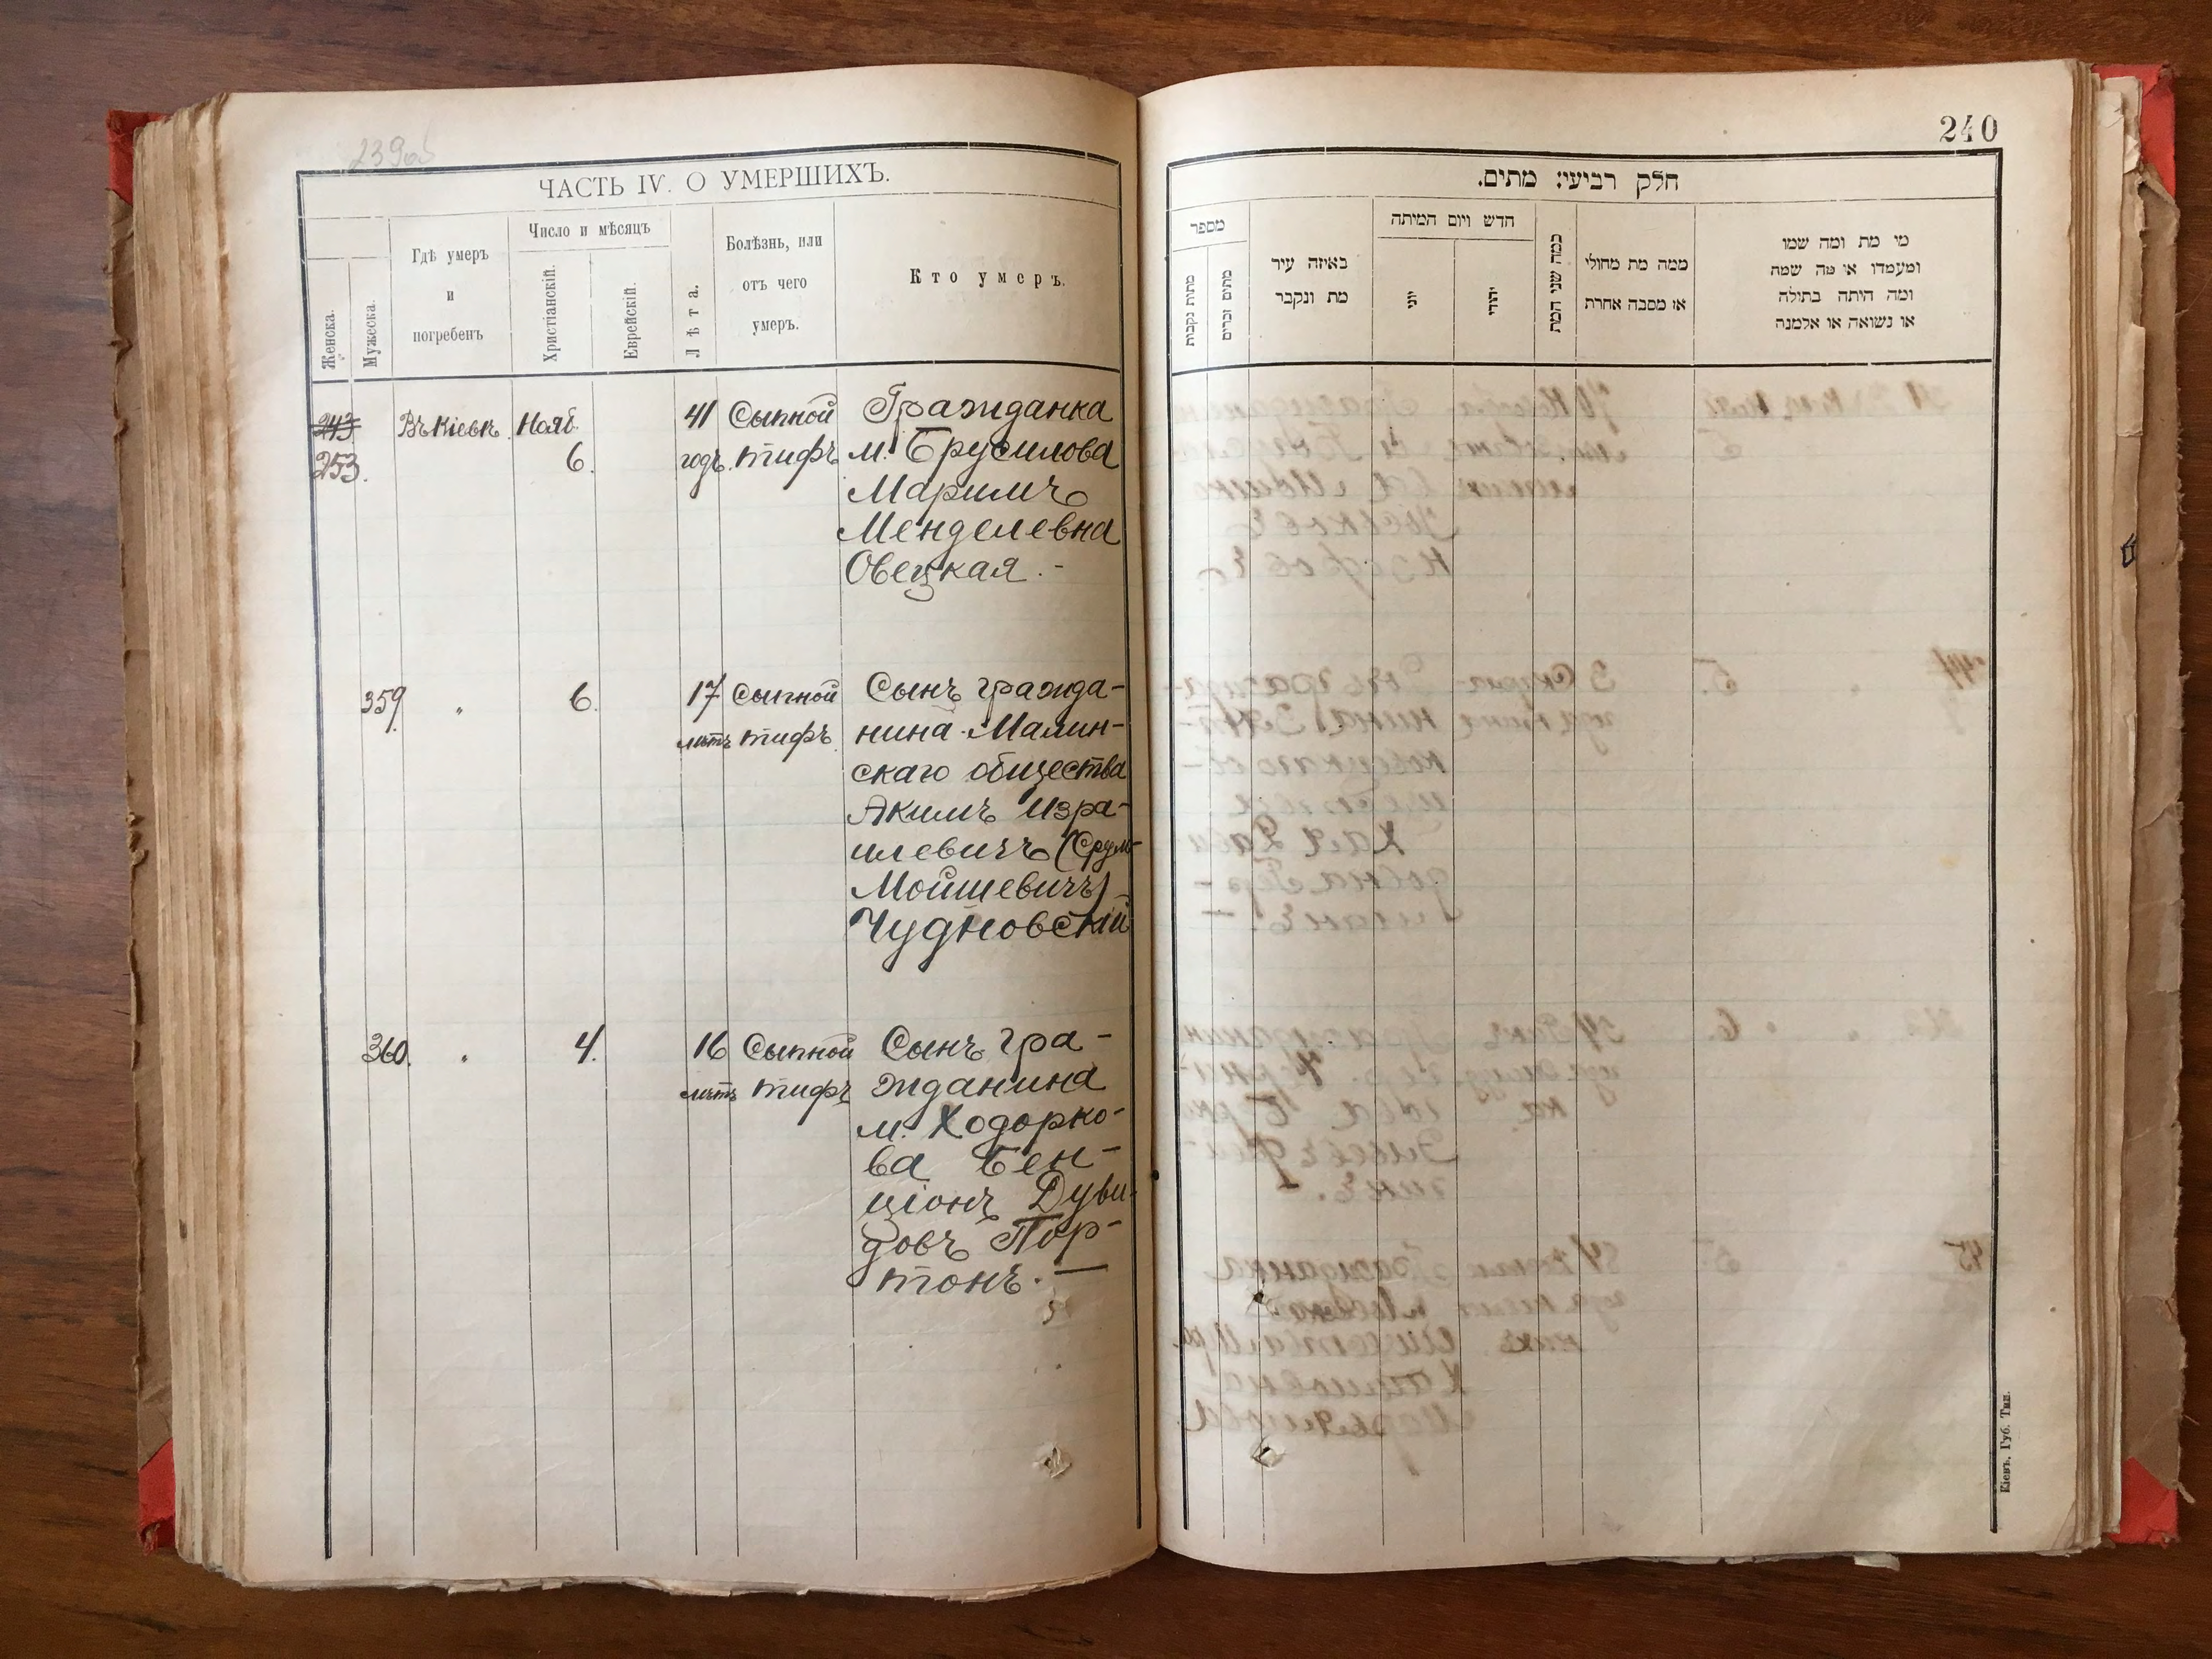 239об
ЧАСТЬ IV. О УМЕРШИХЪ.
Женска.
Мужеска.
Гдѣ умеръ
и
погребенъ
Число и мѣсяцъ
Христіанскій.
Еврейскій.
Лѣта.
Болѣзнь, или
отъ чего
умеръ.
Кто умеръ.
243 Въ Кіевѣ Нояб. 41 Сыпной Гражданка
253. 6. годъ. тифъ м. Брусилова
Маримъ
Менделевна
Овецкая.-
359. " 6. 17 Сыпной Сынъ гражда-
лѣтъ тифъ нина Малин-
скаго общества
Акимъ Изра-
илевичъ (Срул-
Мойшевичъ)
Чудновскій
360. " 4. 16 Сыпной Сынъ гра-
лѣтъ тифъ жданина
м. Ходорко-
ва Бен-
ціонъ Дуви-
довъ Пор-
тонъ.—
240
חלק רביעי: מתים.
מספר
מתות נקבות
מתים זכרים
באיזה עיר
מת ונקבר
חדש ויום המיתה
יוני
יהודי
כמה שני המת
ממה מת מחולי
או מסבה אחרת
מי מת ומה שמו
ומעמדו או מה שמה
ומה היתה בתולה
או נשואה או אלמנה
Кіевъ. Губ. Тип.